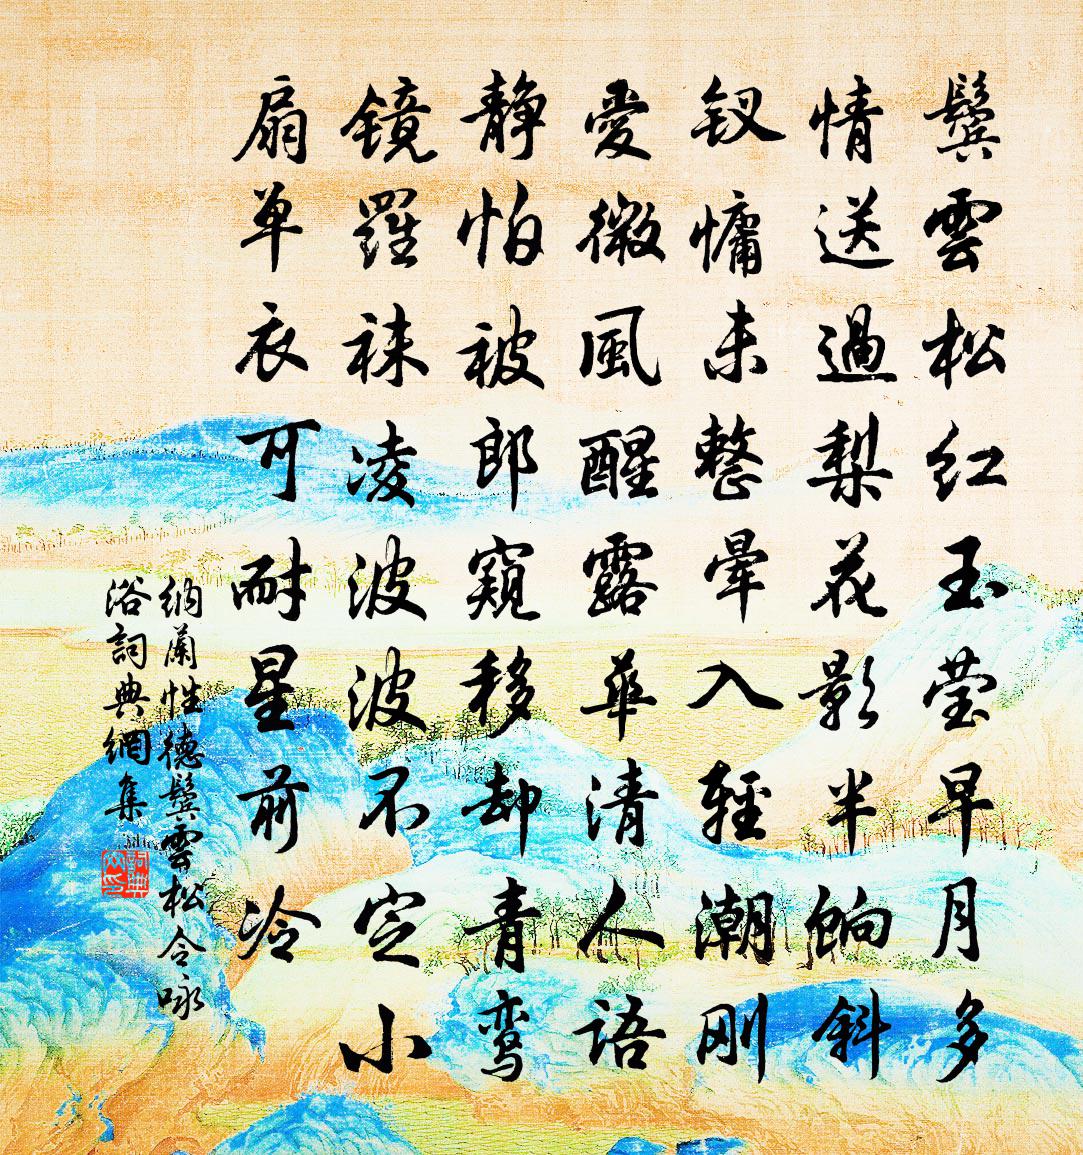 鬓雲松红玉莹早月多
情送過梨花影半餉斜
钗慵未整暈入輕潮刚
愛微風醒露華清人语
静怕被郎窺移却青鸾
镜羅袜凌波波不定小
扇单衣可耐星前冷
纳蘭性德鬓雲松令咏
浴詞典網集